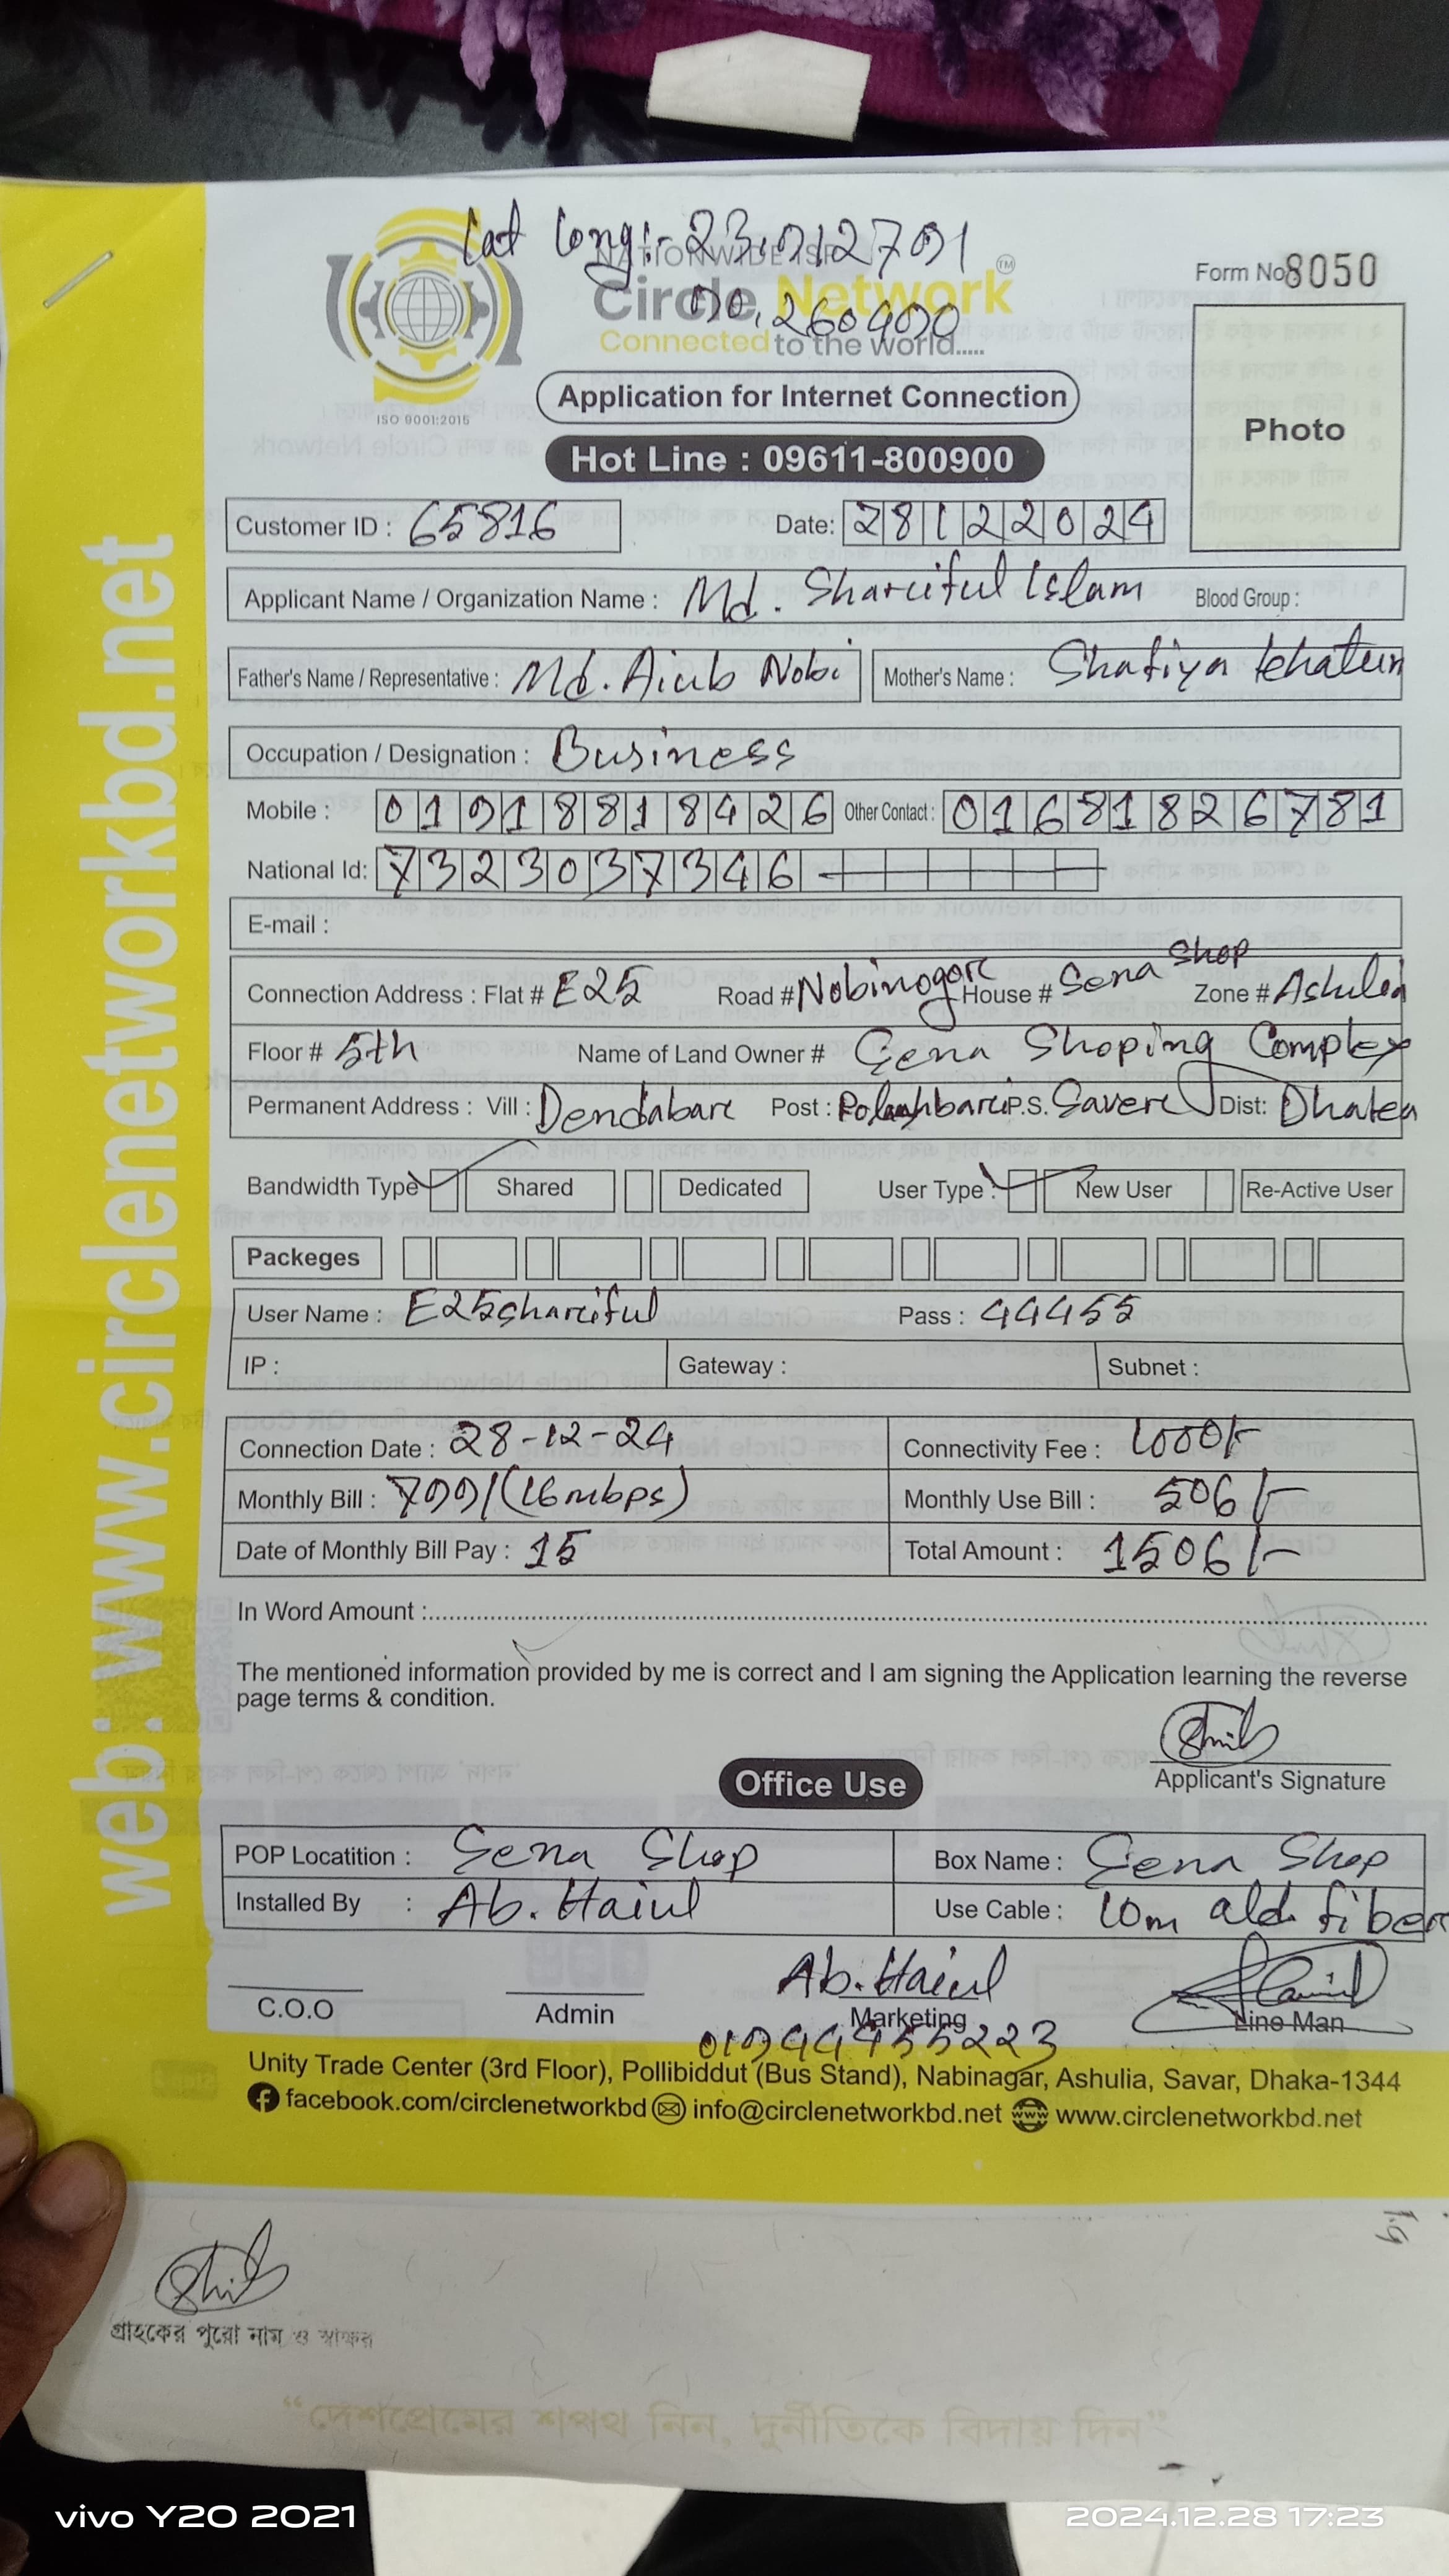 Lat Long:- 23.912791
90.260900
NATIONWIDE ISP
Circle Network TM
Connected to the world.....
ISO 9001:2015
Form No 8050
Photo
Application for Internet Connection
Hot Line : 09611-800900
Customer ID : 65816 Date: 28122024
Applicant Name / Organization Name : Md. Shariful Islam Blood Group :
Father's Name / Representative : Md. Aiub Nobi Mother's Name : Shafiya khatun
Occupation / Designation : Business
Mobile : 01918818426 Other Contact : 01681826781
National Id: 7323037346
E-mail :
Connection Address : Flat # E25 Road # Nobinogor House # Sena Shop Zone # Ashulia
Floor # 5th Name of Land Owner # Sena Shoping Complex
Permanent Address : Vill : Dendabar Post : P.S. Saver Dist: Dhaka
Bandwidth Type : Shared Dedicated User Type : New User Re-Active User
Packeges
User Name : E25shariful Pass : 44455
IP : Gateway : Subnet :
Connection Date : 28-12-24 Connectivity Fee : 1000/-
Monthly Bill : 799/(16mbps) Monthly Use Bill : 506/-
Date of Monthly Bill Pay : 15 Total Amount : 1506/-
In Word Amount :
The mentioned information provided by me is correct and I am signing the Application learning the reverse
page terms & condition.
Applicant's Signature
Office Use
POP Locatition : Sena Shop Box Name : Sena Shop
Installed By : Ab. Haiul Use Cable : 10m old fiber
Ab. Haiul
C.O.O Admin Marketing Line Man
01944455223
Unity Trade Center (3rd Floor), Pollibiddut (Bus Stand), Nabinagar, Ashulia, Savar, Dhaka-1344
facebook.com/circlenetworkbd info@circlenetworkbd.net www www.circlenetworkbd.net
web: www.circlenetworkbd.net
গ্রাহকের পুরো নাম ও স্বাক্ষর
“দেশপ্রেমের শপথ নিন, দুর্নীতিকে বিদায় দিন”
vivo Y20 2021
2024.12.28 17:23